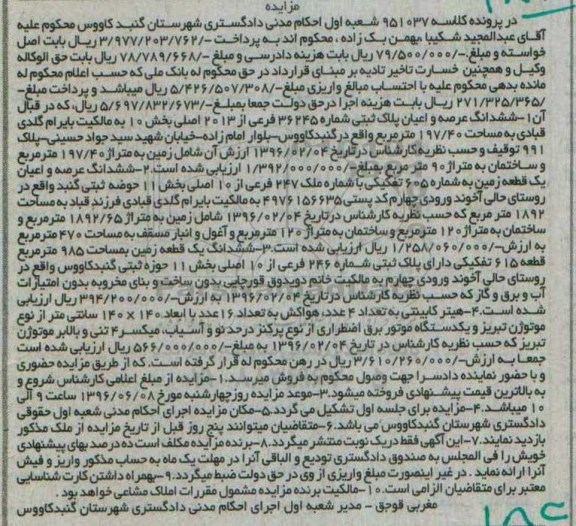 مزایده
در پرونده کلاسه ۹۵۱۰۳۷ شعبه اول احکام مدنی دادگستری شهرستان گنبد کاووس محکوم علیه
آقای عبدالمجید شکیبا بهمن بک زاده ، محکوم اند به پرداخت -/۳/۹۷۷/۲۰۳/۷۶۲ ریال بابت اصل
خواسته و مبلغ -/۷۹/۵۰۰/۰۰۰ ریال بابت هزینه دادرسی و مبلغ -/۷۸/۷۸۹/۶۶۸ ریال بابت حق الوکاله
وکیل و همچنین خسارت تاخیر تادیه بر مبنای قرارداد در حق محکوم له بانک ملی که حسب اعلام محکوم له
مانده بدهی محکوم علیه با احتساب مبالغ واریزی مبلغ -/۵/۴۲۶/۵۰۷/۳۰۸ ریال میباشد و پرداخت مبلغ-
/۲۷۱/۳۲۵/۳۶۵ ریال بابت هزینه اجرا درحق دولت جمعا بمبلغ-/۵/۶۹۷/۸۳۲/۶۷۳ ریال، که در قبال
آن ۱-ششدانگ عرصه و اعیان پلاک ثبتی شماره ۳۶۲۴۵ فرعی از ۲۰۱۳ اصلی بخش ۱۰ به مالکیت بایرام گلدی
قبادی به مساحت ۱۹۷/۴۰ مترمربع واقع درگنبدکاووس-بلوار امام زاده-خیابان شهید سید جواد حسینی-پلاک
۹۹۱ توقیف و حسب نظریه کارشناس درتاریخ ۱۳۹۶/۰۲/۰۴ ارزش آن شامل زمین به متراژ ۱۹۷/۴۰ مترمربع
و ساختمان به متراژ ۹۰ متر مربع بمبلغ-/۱/۳۹۲/۰۰۰/۰۰۰ ریال ارزیابی شده است.۲-ششدانگ عرصه و اعیان
یک قطعه زمین به شماره ۶۰۵ تفکیکی با شماره ملک ۲۴۷ فرعی از ۱۰ اصلی بخش ۱۱ حوضه ثبتی گنبد واقع در
روستای حالی آخوند ورودی چهارم کد پستی ۴۹۷۶۱۵۶۶۳۵ به مالکیت بایرام گلدی قبادی فرزند قباد به مساحت
۱۸۹۲ متر مربع که حسب نظریه کارشناس درتاریخ ۱۳۹۶/۰۲/۰۴ شامل زمین به متراژ ۱۸۹۲/۶۵ مترمربع و
ساختمان به متراژ ۱۲۰ مترمربع و ساختمان به متراژ ۱۲۰ مترمربع و آغول و انبار مسقف به مساحت ۴۷۰ مترمربع
به ارزش-/۱/۲۵۸/۰۶۰/۰۰۰ ریال ارزیابی شده است.۳-ششدانگ یک قطعه زمین بمساحت ۹۸۵ مترمربع
قطعه ۶۱۵ تفکیکی دارای پلاک ثبتی شماره ۲۴۶ فرعی از ۱۰ اصلی بخش ۱۱ حوزه ثبتی گنبدکاووس واقع در
روستای حالی آخوند ورودی چهارم به مالکیت خانم دویدوق قورجایی بدون ساخت و بنای مخروبه بدون امتیازات
آب و برق و گاز که حسب نظریه کارشناس در تاریخ ۱۳۹۶/۰۲/۰۴ به ارزش -/۳۹۴/۲۰۰/۰۰۰ ریال ارزیابی
شده است.۴-هیتر کابینتی به تعداد ۴ عدد، هواکش به تعداد ۱۶ عدد با ابعاد ۱۴۰ × ۱۴۰ سانتی متر از نوع
موتوژن تبریز و یکدستگاه موتور برق اضطراری از نوع پرکنز درحد نو و آسیاب، میکسر ۲ تنی و بالابر موتوژن
تبریز که حسب نظریه کارشناس در تاریخ ۱۳۹۶/۰۲/۰۴ به مبلغ-/۵۶۶/۰۰۰/۰۰۰ ریال ارزیابی شده است
جمعا به ارزش-/۳/۶۱۰/۲۶۰/۰۰۰ ریال در رهن محکوم له قرار گرفته است. که از طریق مزایده حضوری
و با حضور نماینده دادسرا جهت وصول محکوم به فروش میرسد.۱-مزایده از مبلغ اعلامی کارشناس شروع و
به بالاترین قیمت پیشنهادی فروخته میشود.۳-موعد مزایده روزچهارشنبه مورخ ۱۳۹۶/۰۶/۰۸ ساعت ۹ الی
۱۰ میباشد.۴-مزایده برای جلسه اول تشکیل می گردد.۵-مکان مزایده اجرای احکام مدنی شعبه اول حقوقی
دادگستری شهرستان گنبدکاووس می باشد.۶-متقاضیان میتوانند پنج روز قبل از تاریخ مزایده از ملک مذکور
بازدید نمایند.۷-این آگهی فقط دریک نوبت منتشر میگردد.۸-برنده مزایده مکلف است ده درصد بهای پیشنهادی
خویش را فی المجلس به صندوق دادگستری تودیع و الباقی آنرا در مهلت یک ماه به حساب مذکور واریز و فیش
آنرا ارائه نماید . در غیر اینصورت مبلغ واریزی از وی در حق دولت ضبط میگردد.۹-بهمراه داشتن کارت شناسایی
معتبر برای متقاضیان الزامی است.۱۰-مالکیت برنده مزایده مشمول مقررات املاک مشاعی خواهد بود .
مغربی قوجق - مدیر شعبه اول اجرای احکام مدنی دادگستری شهرستان گنبدکاووس